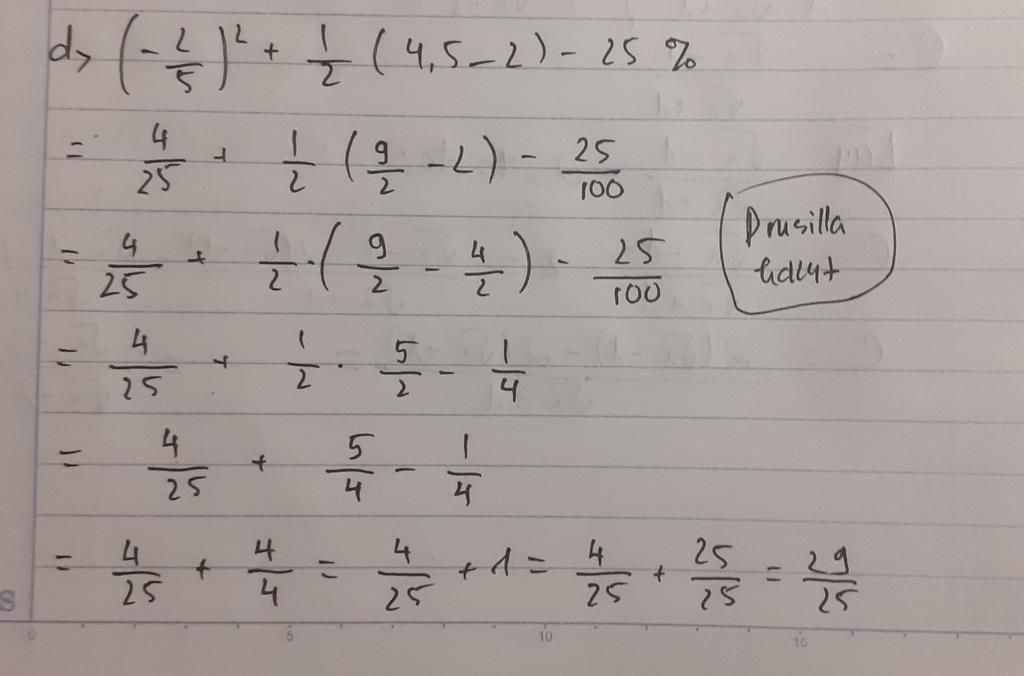 d> (-2/5)² + 1/2 (4,5 - 2) - 25 %
= 4/25 + 1/2 (9/2 - 2) - 25/100
= 4/25 + 1/2 · (9/2 - 4/2) - 25/100
Drusilla
= 4/25 + 1/2 · 5/2 - 1/4
= 4/25 + 5/4 - 1/4
= 4/25 + 4/4 = 4/25 + 1 = 4/25 + 25/25 = 29/25
S
0 5 10 15